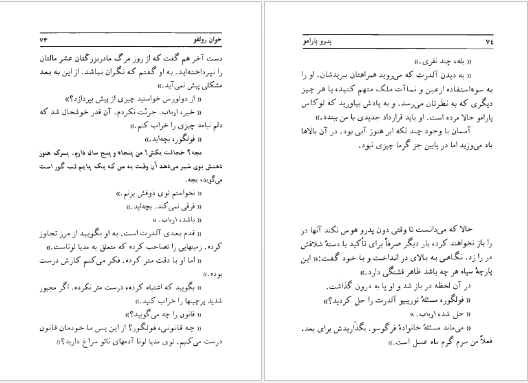 خوان رولفو ۷۳
دست آخر هم گفت که از روز مرگ مادربزرگتان عشر مالتان
را نپرداخته‌اید. به او گفتم که نگران نباشد. از این به بعد
مشکلی پیش نمی‌آید.»
« از دولورس خواستید چیزی از پیش بپردازد؟»
« خیر، ارباب. جرئت نکردم. آن قدر خوشحال شد که
دلم نیامد چیزی را خراب کنم.»
« فولگور، بچه‌اید.»
بچه؟ خجالت بکش! من پنجاه و پنج سال دارم. پسرک هنوز
دهنش بوی شیر می‌دهد آن وقت به من که یک پایم لب گور است
می‌گوید، بچه.
« نخواستم توی ذوقش بزنم.»
« فرقی نمی‌کند. بچه‌اید.»
« باشد، ارباب.»
« قدم بعدی آلدرت است. به او بگویید از مرز تجاوز
کرده. زمینهایی را تصاحب کرده که متعلق به مدیا لوناست.»
« اما او با دقت متر کرده. فکر می‌کنم کارش درست
بوده.»
« بگویید که اشتباه کرده، درست متر نکرده. اگر مجبور
شدید پرچینها را خراب کنید.»
« قانون را چه می‌گویید؟»
« چه قانونی، فولگور؟ از این پس ما خودمان قانون
درست می‌کنیم. توی مدیا لونا آدمهای ناتو سراغ دارید؟»
۷۴ پدرو پارامو
« بله، چند نفری.»
« به دیدن آلدرت که می‌روید همراهتان ببریدشان. او را
به سوءاستفاده ازعین و نماآت ملک متهم کنید، یا هر چیز
دیگری که به نظرتان می‌رسد. و به یادش بیاورید که لوکاس
پارامو حالا مرده است. او باید قرارداد جدیدی با من ببندد.»
آسمان با وجود چند لکه ابر هنوز آبی بود. در آن بالاها
باد می‌وزید اما در پایین جز گرما چیزی نبود.
حالا که می‌دانست تا وقتی دون پدرو هوس نکند آنها در
را باز نخواهند کرد، بار دیگر صرفاً برای تأکید با دستهٔ شلاقش
در را زد. نگاهی به بالای در انداخت و با خود گفت: « این
پارچهٔ سیاه هر چه باشد ظاهر قشنگی دارد.»
در آن لحظه در باز شد و او پا به درون گذاشت.
« فولگور، مسئلهٔ توریبیو آلدرت را حل کردید؟»
« حل شد، ارباب.»
« می‌ماند مسئلهٔ خانوادهٔ فرگوسو. بگذاریدش برای بعد،
فعلاً من سرم گرم ماه عسل است.»